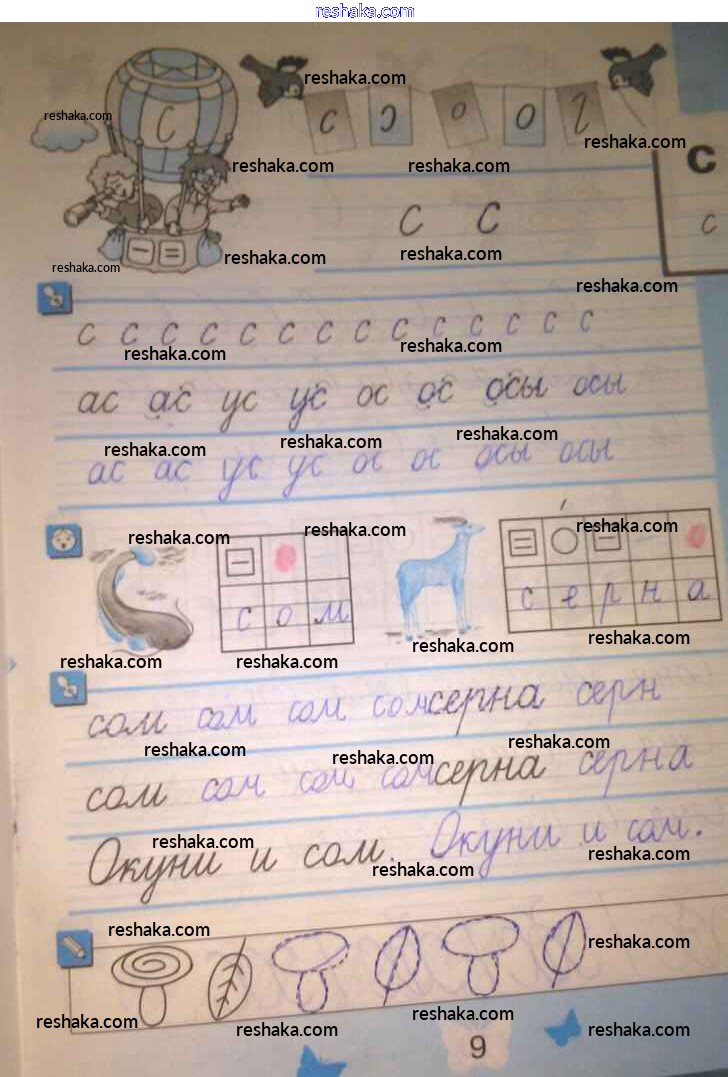 reshaka.com
reshaka.com
с
reshaka.com
reshaka.com
reshaka.com reshaka.com
С
с с
с
reshaka.com reshaka.com
reshaka.com
reshaka.com
с с с с с с с с с с с с с с
reshaka.com reshaka.com
ас ас ус ус ос ос осы осы
reshaka.com reshaka.com reshaka.com
ас ас ус ус ос ос осы осы
reshaka.com reshaka.com reshaka.com
с о м
с е р н а
reshaka.com reshaka.com reshaka.com reshaka.com
сом сом сом сом серна серн
reshaka.com reshaka.com reshaka.com
сом сом сом сом серна серна
Окуни и сом. Окуни и сом.
reshaka.com reshaka.com reshaka.com
reshaka.com reshaka.com
reshaka.com reshaka.com reshaka.com reshaka.com
9